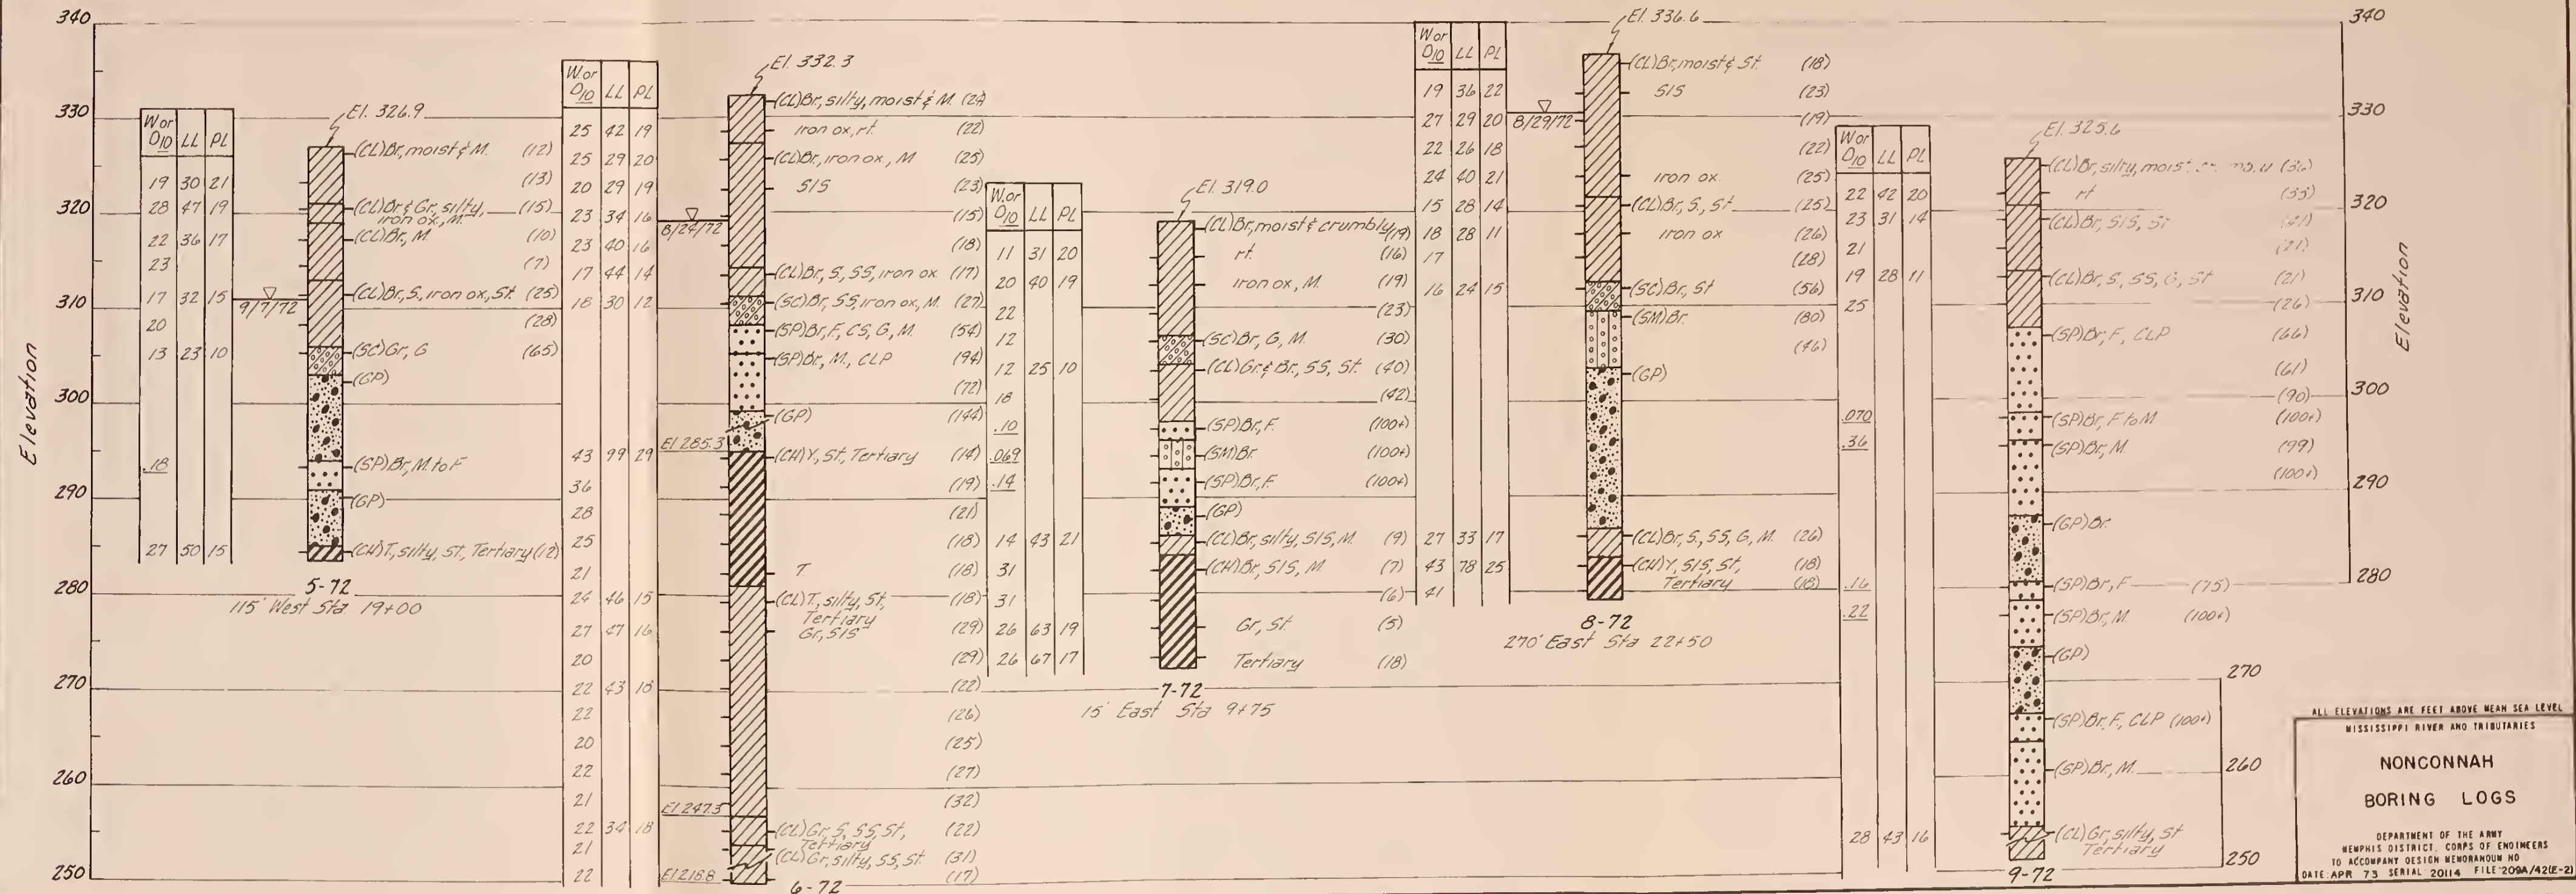 340
330
320
310
300
290
280
270
260
250
Elevation
W or D10 LL PL
19 30 21
28 47 19
22 36 17
23
17 32 15
20
13 23 10
.18
27 50 15
9/7/72
El. 326.9
(CL)Br, moist & M. (12)
(13)
(CL)Br & Gr, silty, (15)
iron ox, M.
(CL)Br, M. (10)
(7)
(CL)Br, S, iron ox, St. (25)
(28)
(SC)Gr, G (65)
(GP)
(SP)Br, M. to F
(GP)
(CH)T, silty, St, Tertiary (12)
5-72
115' West Sta 19+00
W or D10 LL PL
25 42 19
25 29 20
20 29 19
23 34 16
23 40 16
17 44 14
18 30 12
43 99 29
36
28
25
21
24 46 15
27 47 16
20
22 43 18
22
20
22
21
22 34 18
21
22
8/24/72
El 285.3
El 247.3
El 218.8
El. 332.3
(CL)Br, silty, moist & M.
iron ox, rt. (22)
(CL)Br, iron ox, M (25)
SIS (23)
(15)
(18)
(CL)Br, S, SS, iron ox (17)
(SC)Br, SS, iron ox, M. (27)
(SP)Br, F, CS, G, M. (54)
(SP)Br, M., CLP (94)
(72)
(GP) (144)
(CH)Y, St, Tertiary (14)
(19)
(21)
(18)
T (18)
(CL)T, silty, St, (18)
Tertiary
Gr, SIS (29)
(29)
(22)
(26)
(25)
(27)
(32)
(CL)Gr, S, SS, St, (22)
Tertiary
(CL)Gr, silty, SS, St. (31)
(17)
6-72
W or D10 LL PL
11 31 20
20 40 19
22
12
12 25 10
18
.10
.069
.14
14 43 21
31
31
26 63 19
26 67 17
El. 319.0
(CL)Br, moist & crumbly (19)
rt. (16)
iron ox, M. (19)
(23)
(SC)Br, G, M. (30)
(CL)Gr & Br, SS, St. (40)
(42)
(SP)Br, F. (100+)
(SM)Br (100+)
(SP)Br, F (100+)
(GP)
(CL)Br, silty, SIS, M. (9)
(CH)Br, SIS, M (7)
(6)
Gr, St. (5)
Tertiary (18)
7-72
15' East Sta 9+75
W or D10 LL PL
19 36 22
27 29 20
22 26 18
24 40 21
15 28 14
18 28 11
17
16 24 15
27 33 17
43 78 25
41
8/29/72
El. 336.6
(CL)Br, moist & St. (18)
SIS (23)
(19)
(22)
iron ox. (25)
(CL)Br, S., St (25)
iron ox (26)
(28)
(SC)Br, St (56)
(SM)Br. (80)
(46)
(GP)
(CL)Br, S., SS, G, M. (26)
(CH)Y, SIS, St, (18)
Tertiary (18)
8-72
270' East Sta 22+50
W or D10 LL PL
22 42 20
23 31 14
21
19 28 11
25
.070
.36
.16
.22
28 43 16
El. 325.6
(CL)Br, silty, moist
rt (33)
(CL)Br, SIS, St (41)
(21)
(CL)Br, S, SS, G, St (21)
(26)
(SP)Br, F, CLP (66)
(61)
(90)
(SP)Br, F to M (100+)
(SP)Br, M. (99)
(100+)
(GP)Br.
(SP)Br, F (75)
(SP)Br, M. (100+)
(GP)
(SP)Br, F, CLP (100+)
(SP)Br, M.
(CL)Gr, silty, St
Tertiary
9-72
340
330
320
310
300
290
280
270
260
250
Elevation
ALL ELEVATIONS ARE FEET ABOVE MEAN SEA LEVEL
MISSISSIPPI RIVER AND TRIBUTARIES
NONCONNAH
BORING LOGS
DEPARTMENT OF THE ARMY
MEMPHIS DISTRICT, CORPS OF ENGINEERS
TO ACCOMPANY DESIGN MEMORANDUM NO
DATE: APR 73 SERIAL 20114 FILE 209A/42(E-2)